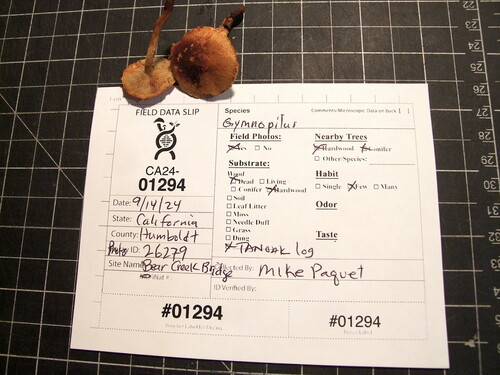 FIELD DATA SLIP
CA24-
01294
Date: 9/14/24
State: California
County: Humboldt
Photo ID: 26279
Site Name: Bear Creek Bridge
iNat #:
Species
Comments/Microscopic Data on Back [ ]
Gymnopilus
Field Photos:
Yes No
Nearby Trees
Hardwood Conifer
Other/Species:
Substrate:
Wood
Dead Living
Conifer Hardwood
Soil
Leaf Litter
Moss
Needle Duff
Grass
Dung
TANOAK log
Habit
Single Few Many
Odor
Taste
Mike Paquet
ID Verified By:
#01294
#01294
22
21
20
19
18
17
16
15